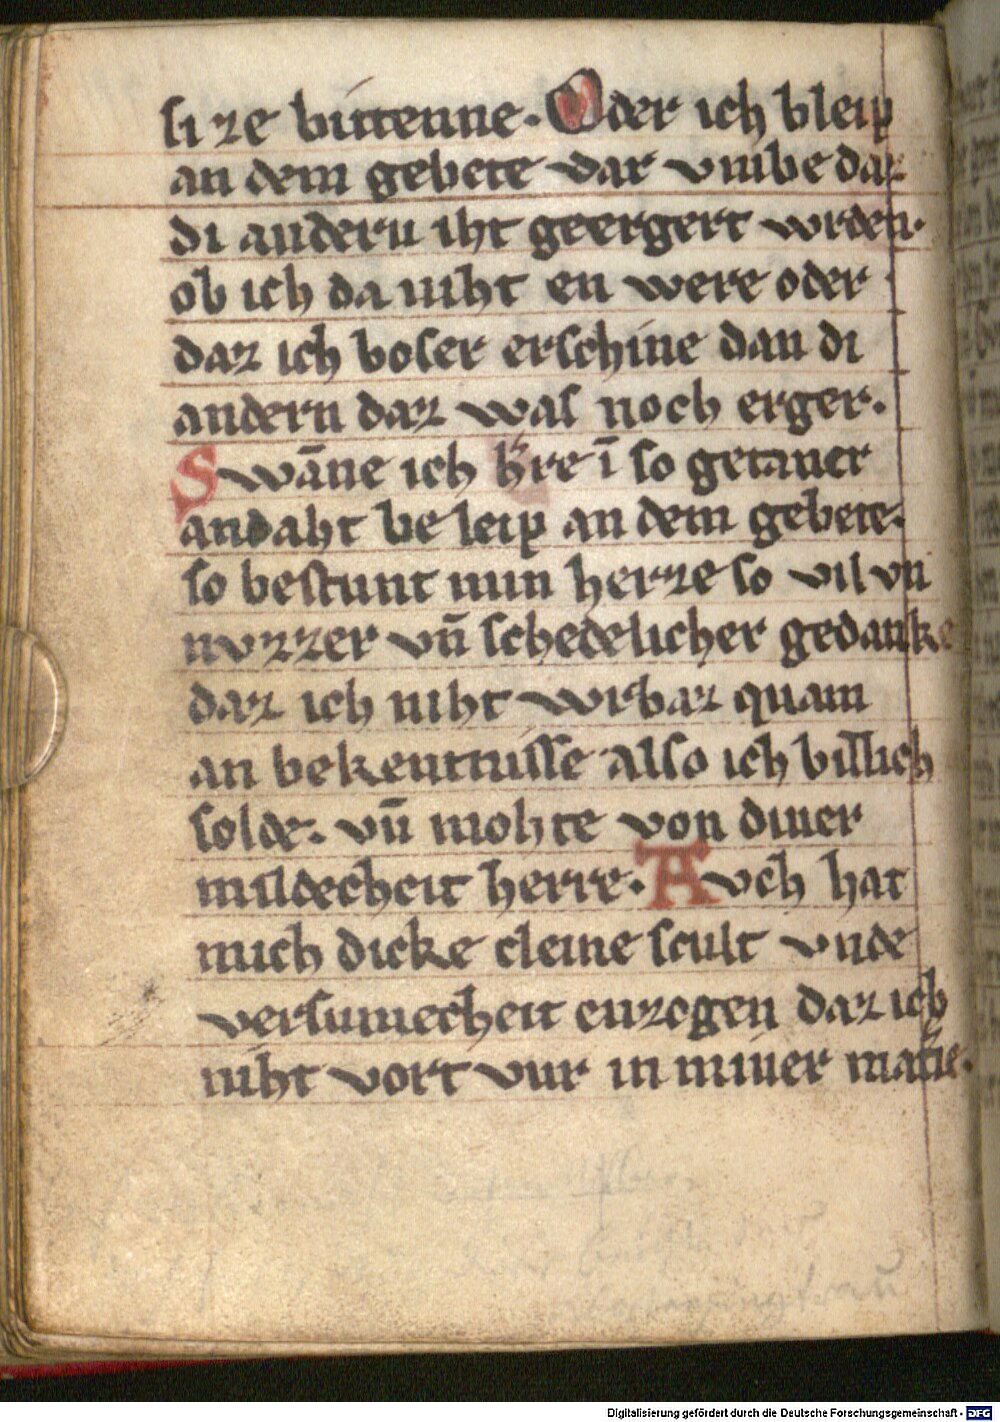 si ze bittenne. Oder ich bleip
an dem gebete dar vmbe daz
di andern iht geergert wrden.
ob ich da niht en were oder
daz ich boser erschine dan di
andern daz was noch erger.
Swāne ich h're ī so getaner
andaht be leip an dem gebete.
so bestunt min herze so vil vn
nvzzer vn̄ schedelicher gedanke
daz ich niht wrbaz quam
an bekentnisse also ich billich
solde. vn̄ mohte von diner
mildecheit herre. Avch hat
mich dicke cleine scult vnde
versumecheit enzogen daz ich
niht vort vur in miner matīe.
Digitalisierung gefördert durch die Deutsche Forschungsgemeinschaft - DFG